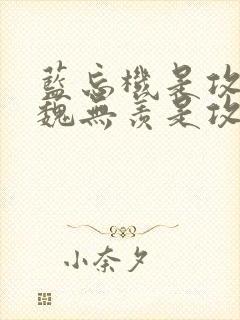 藍忘機是攻
魏無羨是攻
小奈夕